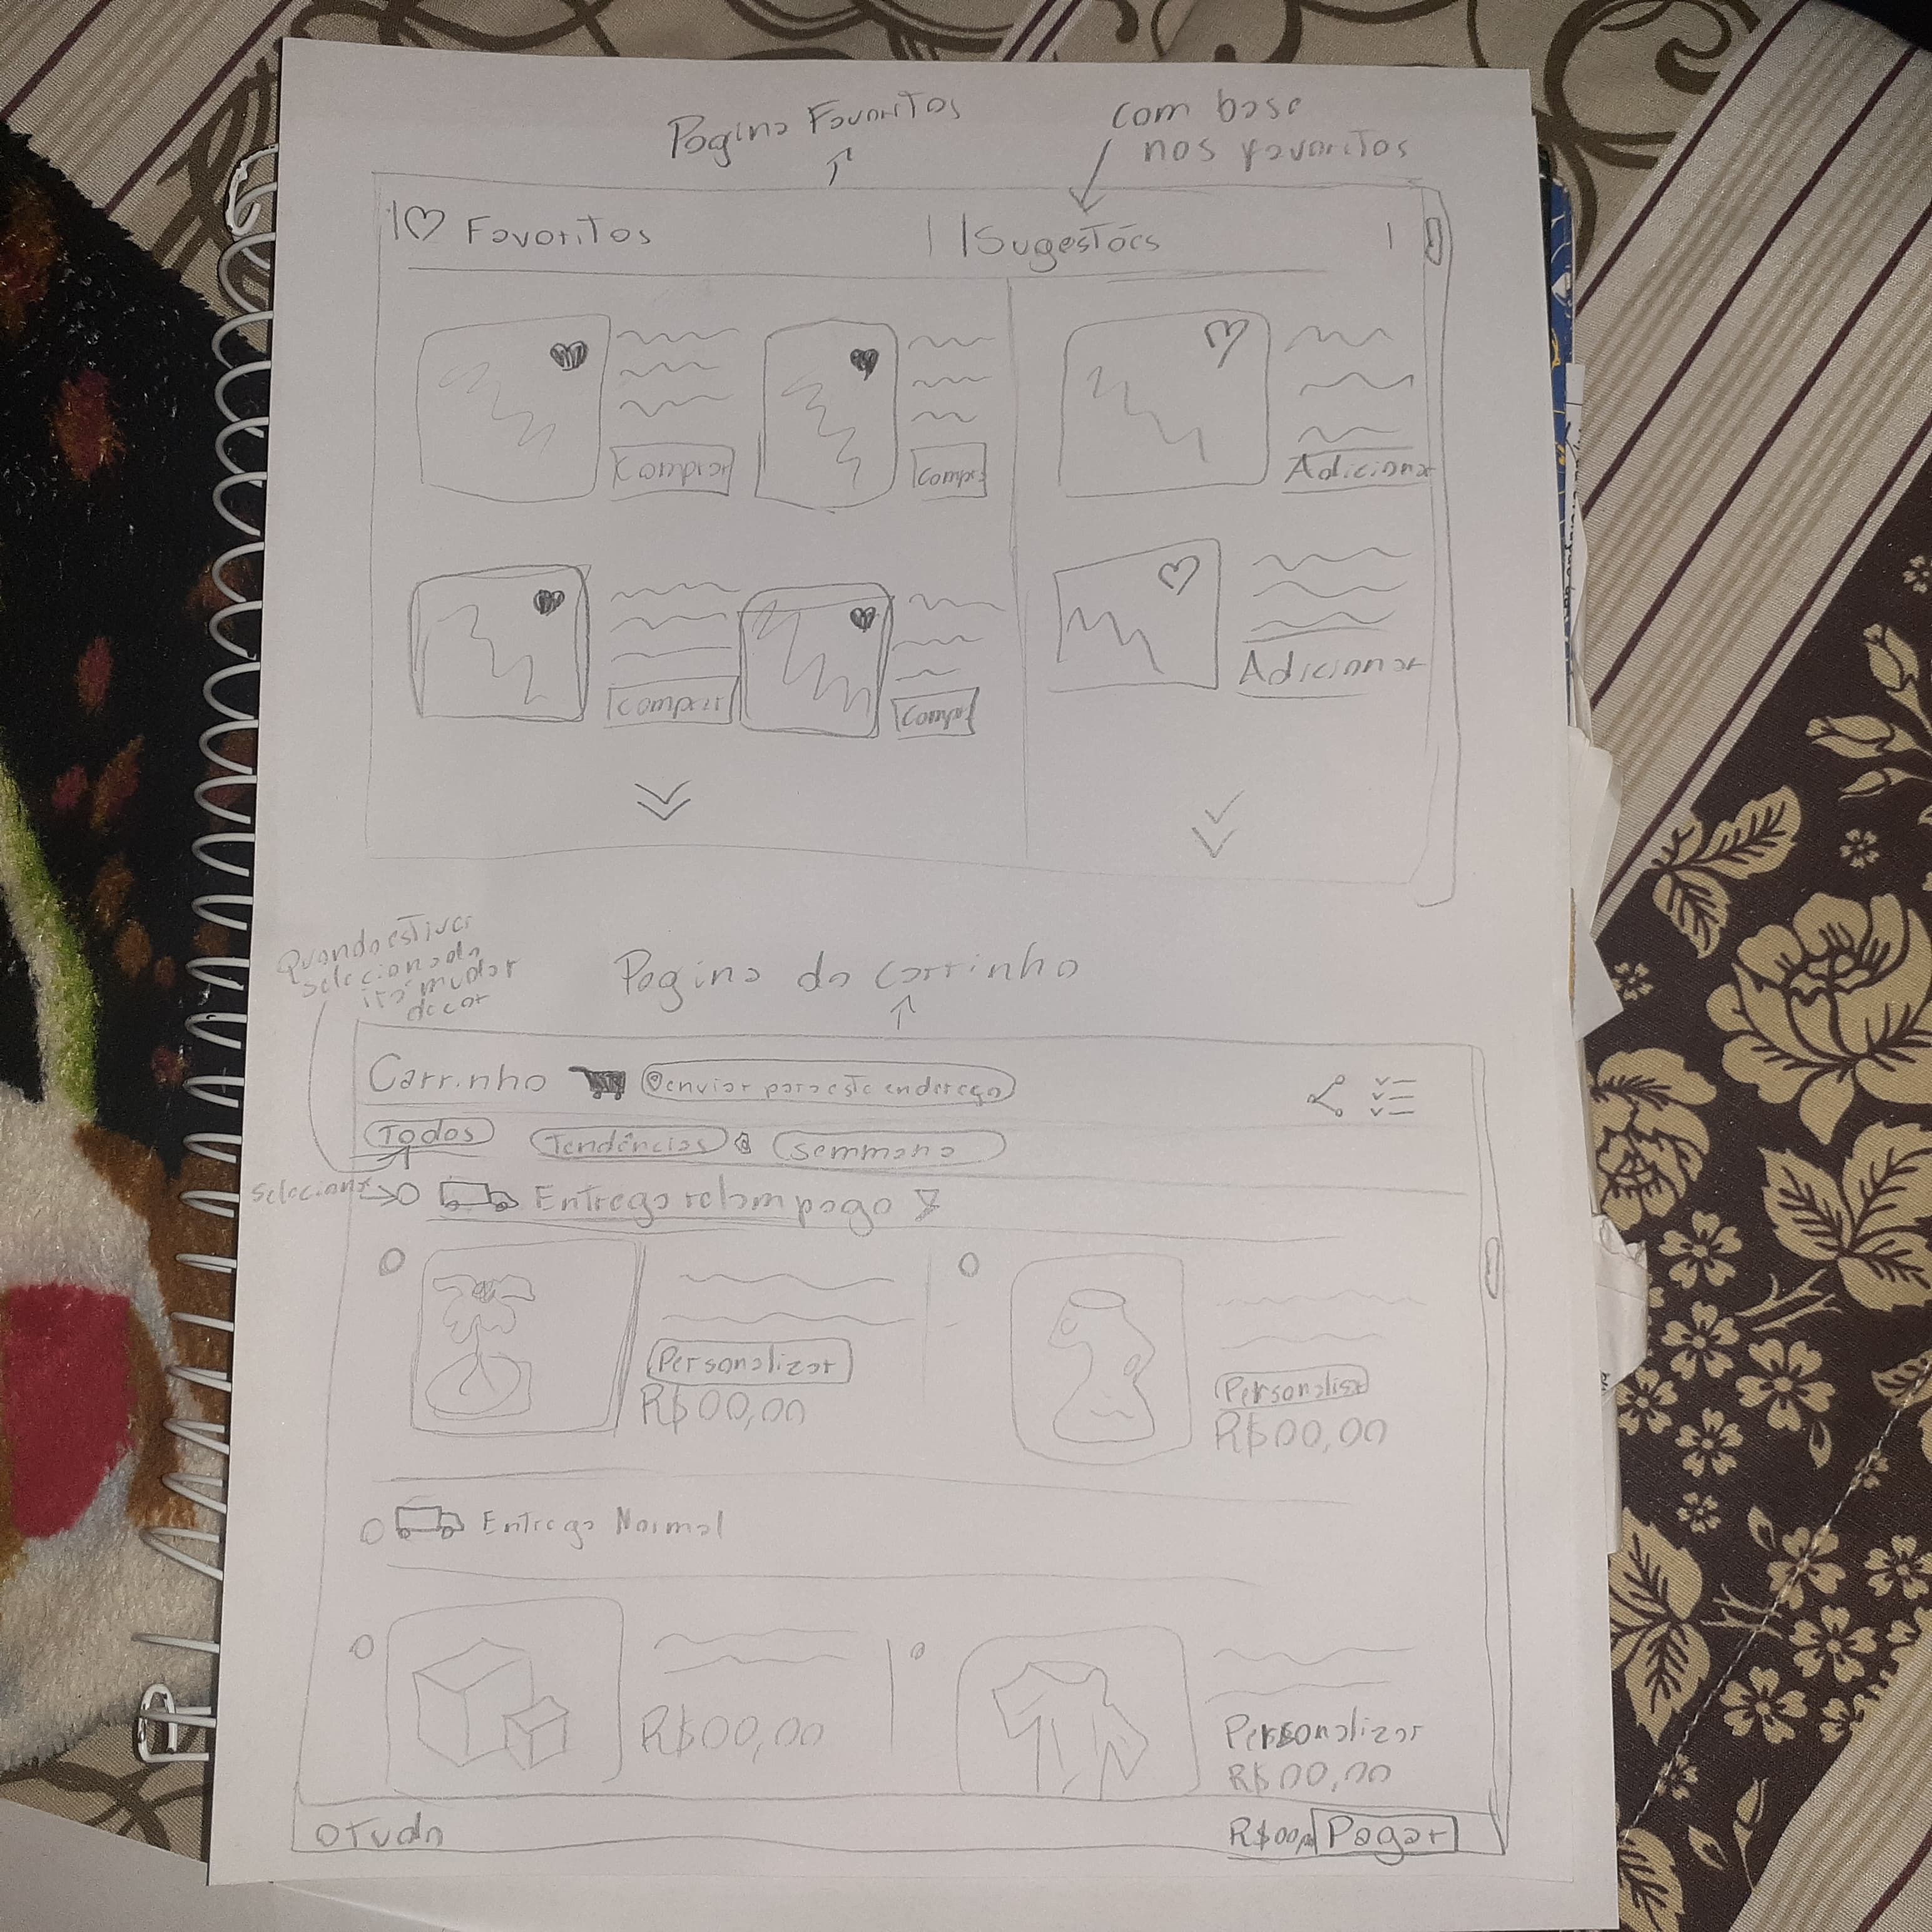 Pagina Favoritos
com base
nos favoritos
Favoritos
Sugestões
Comprar
Compr
Adicionar
Comprar
Compr
Adicionar
Quando estiver
selecionado
irá mudar
de cor
Pagina do carrinho
Carrinho
enviar para este endereço
Todos
Tendências
semmana
Selecionar
Entrega relampago
Personalizar
R$00,00
Personalizar
R$00,00
Entrega Normal
R$00,00
Personalizar
R$00,00
Tudo
R$00,00
Pagar